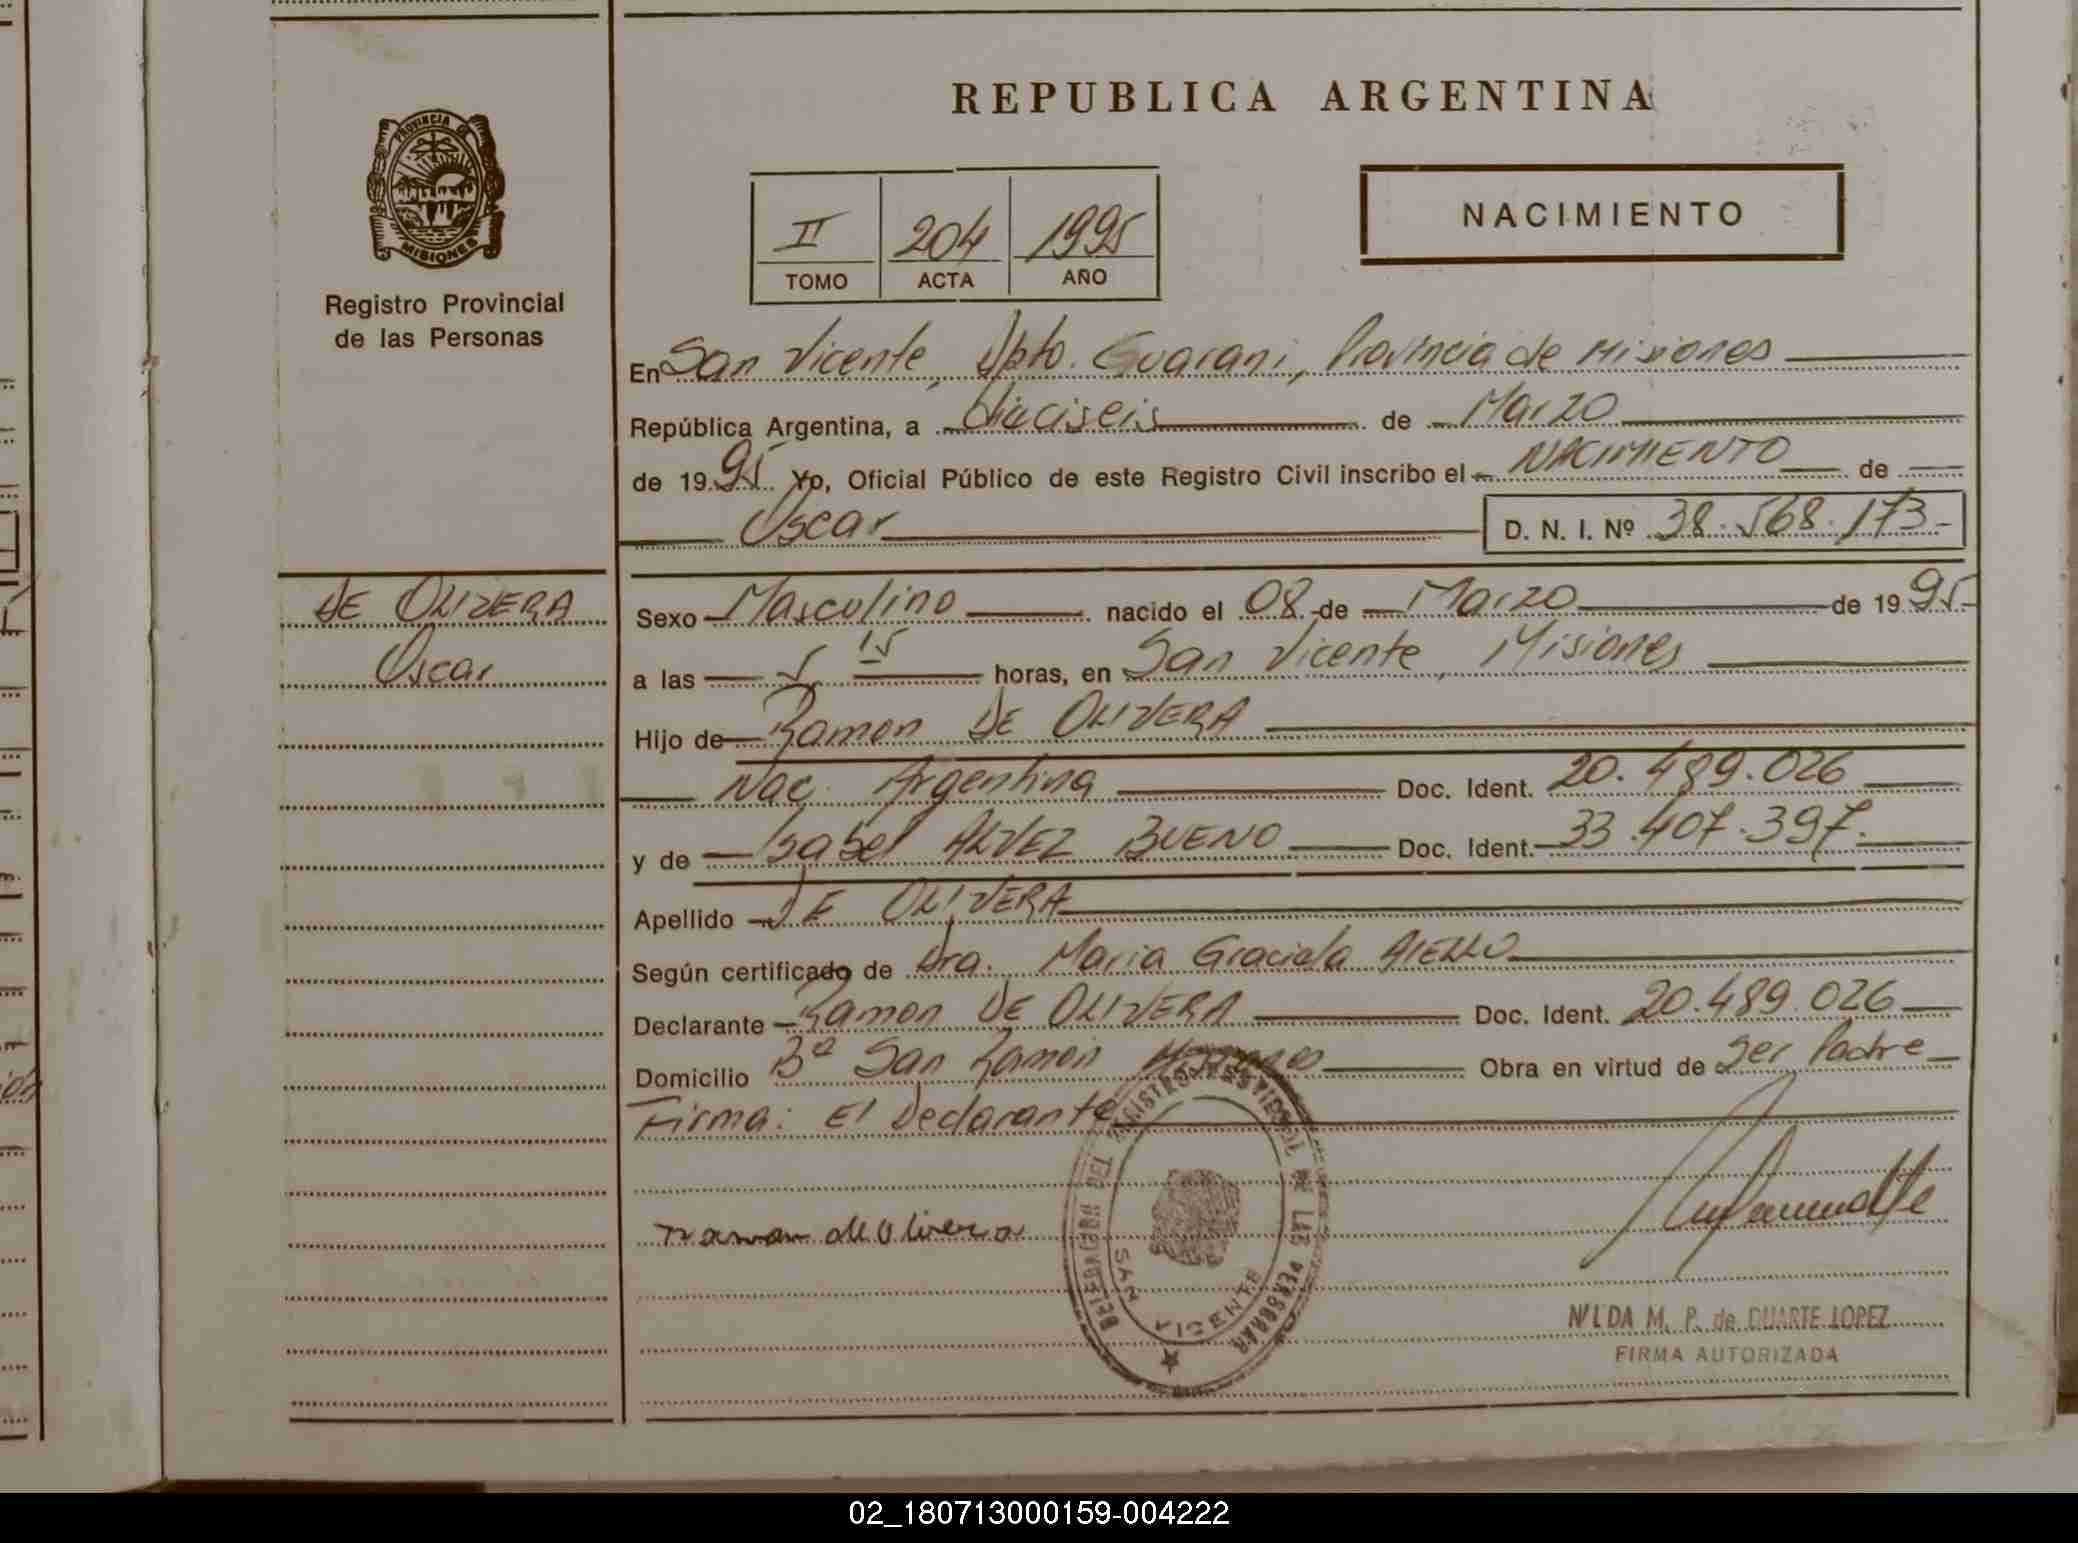 REPUBLICA ARGENTINA
PROVINCIA DE
MISIONES
Registro Provincial
de las Personas
II 204 1995
TOMO ACTA AÑO
NACIMIENTO
En San Vicente, Dpto. Guarani, Provincia de Misiones
República Argentina, a Dieciseis de Marzo
de 1995 Yo, Oficial Público de este Registro Civil inscribo el NACIMIENTO de
Oscar D. N. I. Nº 38.568.173-
DE OLIVERA
Oscar
Sexo Masculino nacido el 08 de Marzo de 1995-
a las 5 15 horas, en San Vicente, Misiones
Hijo de Ramon DE OLIVERA
Nac. Argentina Doc. Ident. 20.489.026
y de Isabel ALVEZ BUENO Doc. Ident. 33.407.397.
Apellido DE OLIVERA
Según certificado de Dra. Maria Graciela AIELLO
Declarante Ramon DE OLIVERA Doc. Ident. 20.489.026
Domicilio Bº San Ramon Misiones Obra en virtud de Ser Padre
Firma: El Declarante
ramon de Olivera
DELEGACION DEL REGISTRO PROVINCIAL DE LAS PERSONAS
SAN VICENTE
NILDA M. P. de DUARTE LOPEZ
FIRMA AUTORIZADA
02_180713000159-004222